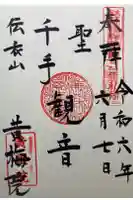 奉拝
令和六年
六月七日
聖
千手観音
伝衣山
青梅院